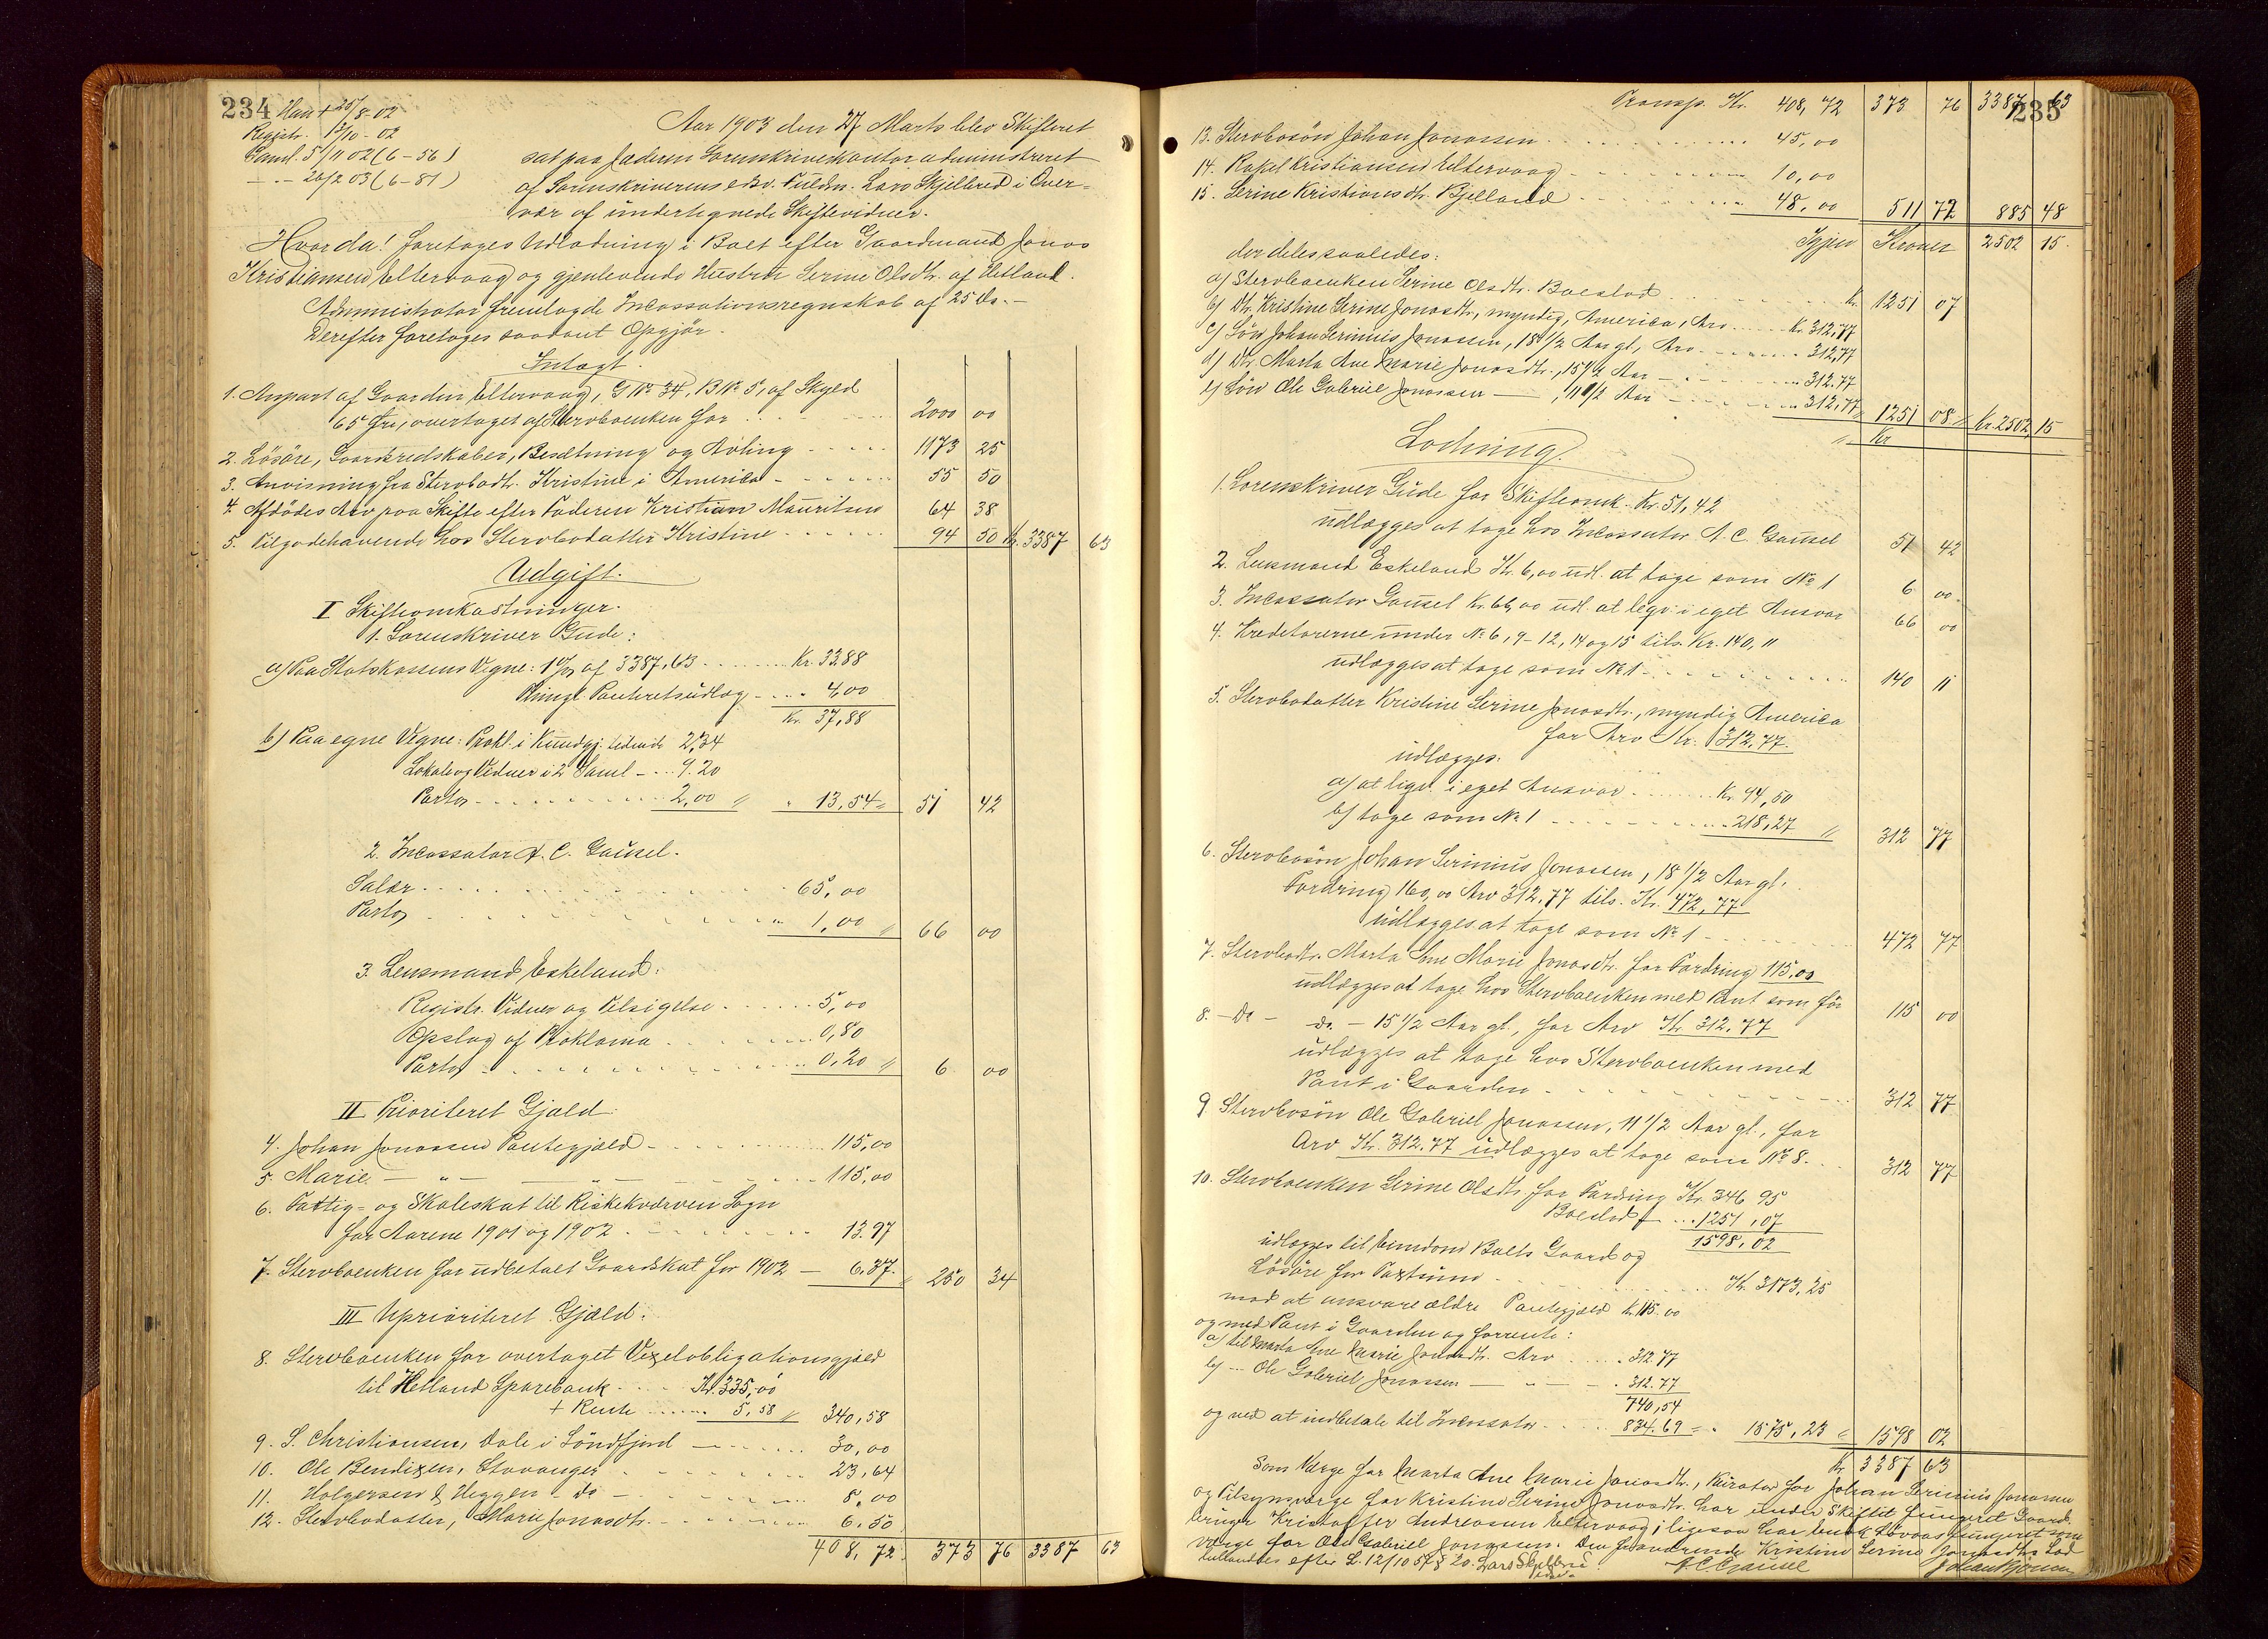 234
Han + 25/8-02
Registr. 17/10-02
Saml. 5/11 02 (6-56)
—"— 26/2 03 (6-81)
Aar 1903 den 27 Marts blev Skifteret
sat paa Jæderen Sorenskriverkontor administreret
af Sorenskriverens edsv. Fuldm. Lars Skjelbred i Over-
vær af undertegnede Skiftevidner.
Hvorda! foretoges Udlodning i Boet efter Gaardmand Jonas
Kristiansen Eltervaag og gjenlevende Hustru Serine Olsdtr. af Hetland.
Administrator fremlagde Incassationsregnskab af 25 ds.-
Derefter foretoges saadant Opgjør.
Indtægt.
1. Anpart af Gaarden Eltervaag, G.No 34, B.No 5, af Skyld
65 Øre, overtaget af Stervboenken for 2000 00
2. Løsøre, Gaardsredskaber, Besætning og Avling 1173 25
3. Anvisning fra Stervbodtr. Kristine i America 55 50
4. Afdødes Arv paa Skifte efter Faderen Kristian Mauritsen 64 38
5. Tilgodehavende hos Stervbodatter Kristine 94 50 Kr. 3387 63
Udgift.
I Skifteomkostninger.
1. Sorenskriver Gude:
a) Paa Statskassens Vegne: 1% af 3387,63 Kr. 33,88
Thingl. Panteretsudlæg 4,00
Kr. 37,88
b) Paa egne Vegne: Prokl. i Kundgj. tidende 2,34
Lokale og Vidner i 2 Saml 9.20
Porto 2,00 " 13,54 51 42
2. Incassator A. C. Gausel.
Salær 65,00
Porto 1,00 66 00
3. Lensmand Eskeland:
Registr. Vidner og Tilsigelse 5,00
Opslag af Proklama 0,80
Porto 0,20 6 00
II Prioriteret Gjæld
4. Johan Jonassen Pantegjæld 115,00
5. Marie —"— —"— 115,00
6. Fattig- og Skoleskat til Riskekværven Sogn
for Aarene 1901 og 1902 13.97
7. Stervboenken for udbetalt Gaardskat for 1902 6.37 250 34
III Uprioriteret Gjæld.
8. Stervboenken for overtaget Vexelobligationsgjæld
til Hetland Sparebank Kr. 335,00
+ Rente 5,58 340,58
9. S. Christiansen, Dale i Søndfjord 30,00
10. Ole Bendixen, Stavanger 23,64
11. Holgersen & Heggen - do - 8,00
12. Stervbodatter, Marie Jonasdtr. 6.50
408,72 373 76 3387 63
235
Transp. Kr. 408,72 373 76 3387 63
13. Stervbosøn Johan Jonassen 45,00
14. Rakel Kristiansen Eltervaag 10,00
15. Serine Kristiansdtr. Bjelland 48,00 511 72 885 48
Igjen Kroner 2502 15
der deles saaledes:
a) Stervboenken Serine Olsdtr. Boeslod Kr. 1251 07
b) Dtr. Kristine Serine Jonasdtr., myndig, America, Arv Kr. 312,77
c) Søn Johan Serinius Jonassen, 18 1/2 Aar gl., Arv 312,77
d) Dtr. Marta Ane Marie Jonasdtr., 15 1/2 Aar 312.77
e) Søn Ole Gabriel Jonassen —, 11 1/2 Aar 312,77 1251 08 Kr. 2502,15
Kr
Lodning.
1. Sorenskriver Gude for Skifteomk. Kr. 51,42
udlægges at tage hos Incassator A. C. Gausel 51 42
2. Lensmand Eskeland Kr. 6,00 udl. at tage som No 1 6 00
3. Incassator Gausel Kr. 66,00 udl. at liqv. i eget Ansvar 66 00
4. Kreditorerne under No 6, 9-12, 14 og 15 tils. Kr. 140,11
udlægges at tage som No 1 140 11
5. Stervbodatter Kristine Serine Jonasdtr., myndig America
for Arv Kr. 312,77.
udlægges.
a) at liqv. i eget Ansvar Kr. 94,50
b) tage som No 1 218,27 312 77
6. Stervbosøn Johan Serinius Jonassen, 18 1/2 Aar gl.
Fordring 160,00 Arv 312,77 tils. Kr. 472,77
udlægges at tage som No 1 472 77
7. Stervbodtr. Marta Ane Marie Jonasdtr. for Fordring 115.00
udlægges at tage hos Stervboenken med Pant som før 115 00
8. - Do - do. - 15 1/2 Aar gl., for Arv Kr 312.77
udlægges at tage hos Stervboenken med
Pant i Gaarden 312 77
9 Stervbosøn Ole Gabriel Jonassen, 11 1/2 Aar gl., for
Arv Kr. 312.77 udlægges at tage som No 8. 312 77
10. Stervboenken Serine Olsdtr for Fordring Kr. 346 95
Boeslod 1251,07
1598,02
udlægges til Eiendom Boets Gaard og
Løsøre for Taxtsum Kr. 3173,25
mod at ansvare ældre Pantegjæld Kr. 115.00
og med Pant i Gaarden og forrente:
a) til Marta Ane Marie Jonasdtr. Arv 312.77
b) — Ole Gabriel Jonassen — " — 312.77
740,54
og ved at indbetale til Incassator 834.69 1575,23 1598 02
Kr. 3387 63
Som Værge for Marta Ane Marie Jonasdtr., Kurator for Johan Serinius Jonassen
og Tilsynsværge for Kristine Serine Jonasdtr. har under Skiftet fungeret Gaard-
bruger Kristoffer Andreassen Eltervaag; ligesaa har fungeret som
værge for Ole Gabriel Jonassen. Den fraværende Kristine Serine Jonasdtrs Lod
efter L. 12/10 57 § 20. Lars Skjelbred
A. C. Gausel